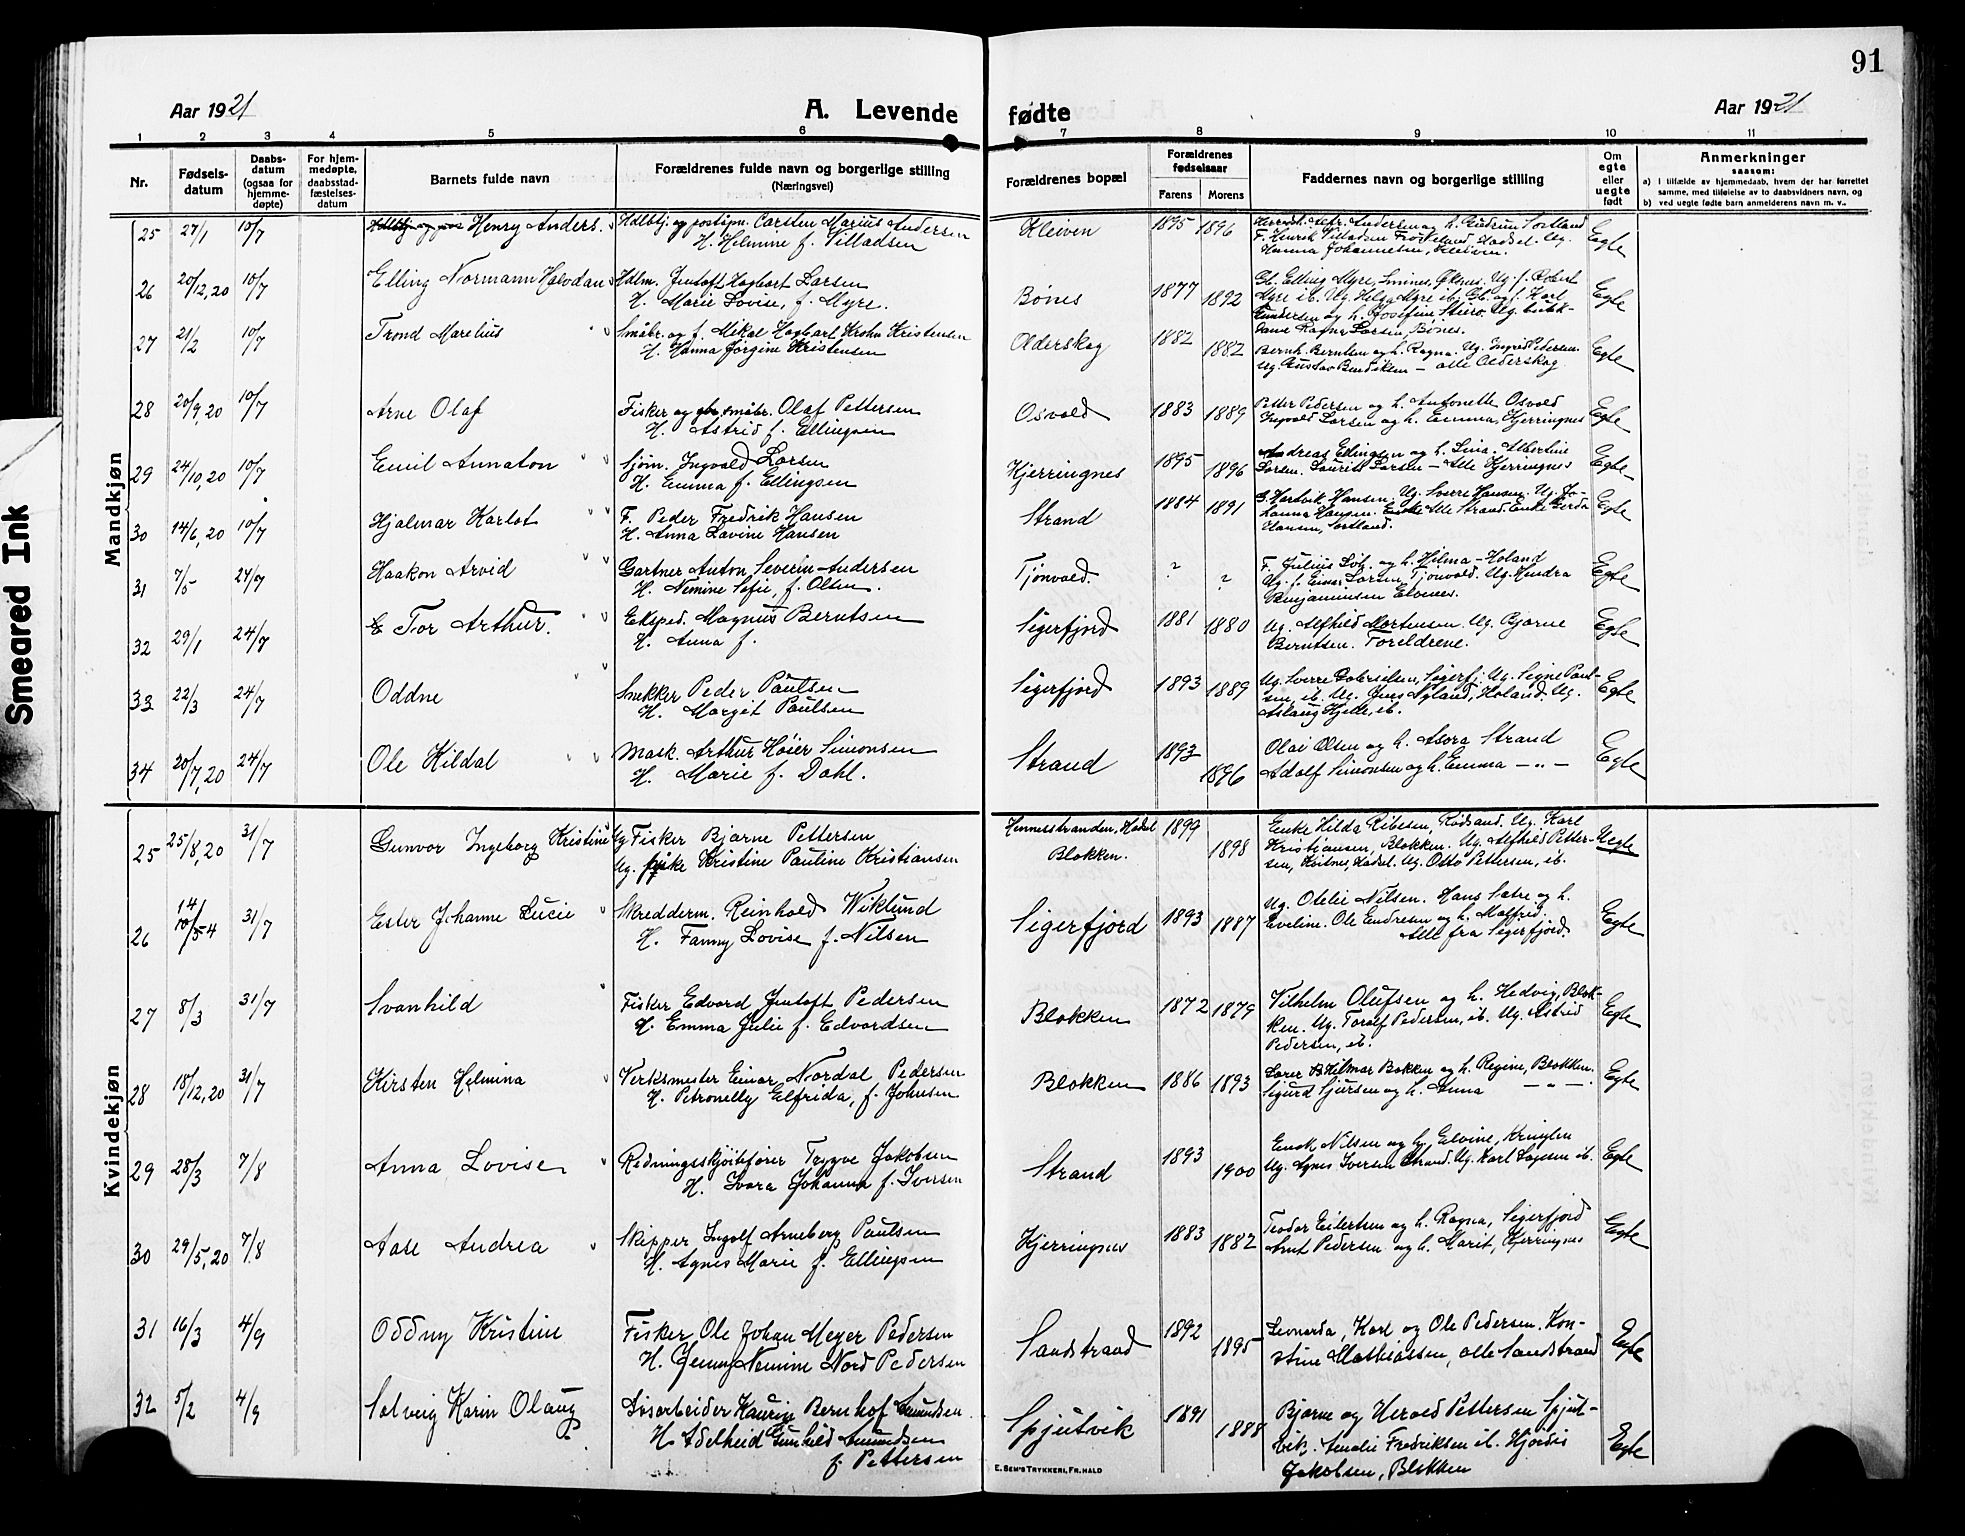 91
Aar 1921 A. Levende fødte Aar 1921
1 2 3 4 5 6 7 8 9 10 11
Nr. Fødselsdatum Daabsdatum (ogsaa for hjemmedøpte) For hjemmedøpte, daabsstadfæstelsesdatum Barnets fulde navn Forældrenes fulde navn og borgerlige stilling (Næringsvei) Forældrenes bopæl Forældrenes fødselsaar Farens Morens Faddernes navn og borgerlige stilling Om egte eller uegte født Anmerkninger saasom:
a) i tilfælde av hjemmedaab, hvem der har forrettet samme, med tilføielse av to daabsvidners navn, og
b) ved uegte fødte barn anmelderens navn m. v..
Mandkjøn
25 27/1 10/7 Henry Anders. Hdlbtj. og postspn. Carsten Marius Andersen Kleiven 1895 1896 Egte
H. Helmine f. Villadsen
Hanna Johannesen, Kleiven.
26 20/12,20 10/7 Elling Normann Halvdan Hdlm. Jentoft Hagbart Larsen Bønes 1877 1892 Gb. Elling Myre, Smines, Øksnes. Ug. f. Robert Egte
H. Marie Lovise, f. Myre. Myre ib. Ug. Helga Myre ib. Gb. og f. Karl
Gundersen og h. Josefine Stiero. Ug. butikdame Ragna Larsen, Bønes.
27 21/2 10/7 Trond Marelius Småbr. og f. Mikal Hagbart Krohn Kristensen Olderskog 1882 1882 Bernh. Berntsen og h. Ragna. Ug. Ingrid Pedersen. Egte
H. Hanna Jørgine Kristensen Ug. Gustav Bendiksen - alle Olderskog
28 20/9,20 10/7 Arne Olaf Fisker og småbr. Olaf Pettersen Osvold 1883 1889 Petter Pedersen og h. Antonette Osvold Egte
H. Astrid f. Ellingsen Ingvald Larsen og h. Emma, Kjerringnes
29 24/10,20 10/7 Emil Annaton Sjøm. Ingvald Larsen Kjerringnes 1895 1896 Andreas Ellingsen og h. Lina. Albertine Egte
H. Emma f. Ellingsen Larsen. Laurits Larsen - Alle Kjerringnes
30 14/6,20 10/7 Hjalmar Karlot F. Peder Fredrik Hansen Strand 1884 1891 G. Hartvik Hansen. Ug. Sverre Hansen. Ug. Johanna Hansen. Alle Strand. Enke Gerda Egte
H. Anna Lavine Hansen Hansen, Sortland.
31 7/5 24/7 Haakon Arvid Gartner Anton Severin Andersen Tjønvold. ? ? F. Julius Lok. og h. Hilma - Holand Egte
H. Nemine Sofie, f. Olsen. Ug. f. Einar Larsen, Tjønvold. Ug. Hindra
Benjaminsen Elvenes.
32 29/1 24/7 Tor Arthur. Eksped. Magnus Berntsen Sigerfjord 1881 1880 Ug. Alfhild Mortensen. Ug. Bjarne Egte
H. Anna f. Berntsen. Foreldrene.
33 22/3 24/7 Oddne Snekker Peder Paulsen Sigerfjord 1893 1889 Ug. Sverre Gabrielsen, Sigerfj. Ug. Signe Paulsen, ib. Ug. Jens Nyland, Holand. Ug. Egte
H. Margit Paulsen Aslaug Hjelle, ib.
34 20/7,20 24/7 Ole Kildal Mask. Arthur Høier Simonsen Strand 1893 1896 Olai Olsen og h. Asora Strand Egte
H. Marie f. Dahl. Adolf Simonsen og h. Emma - " -
Kvindekjøn
25 25/8,20 31/7 Gunvor Ingeborg Kristine Ug Fisker Bjarne Pettersen Hennesstranden, Hadsel 1899 1898 Enke Hilda Ribesen, Rødsand. Ug. Karl Uegte
Ug. Kristine Pauline Kristiansen Blokken. Kristiansen, Blokken. Ug. Alfhild Pettersen, Hadsel. Ug. Otto Pettersen, ib.
26 14/5 31/7 Ester Johanne Lucie Skredderm. Reinhold Wiklund Sigerfjord 1893 1887 Ug. Otelie Nilsen. Hans Sætre og h. Egte
H. Fanny Lovise f. Nilsen Eveline. Ole Endresen og h. Malfred,
Alle fra Sigerfjord.
27 8/3 31/7 Svanhild Fisker Edvard Jentoft Pedersen Blokken 1872 1879 Vilhelm Olufsen og h. Hedvig, Blokken. Ug. Toralf Pedersen, ib. Ug. Astrid Egte
H. Emma Julie f. Edvardsen Pedersen, ib.
28 18/12,20 31/7 Kirsten Helmina Verksmester Einar Nordal Pedersen Blokken 1886 1893 Lærer Hilmar Bakken og h. Regine, Blokken. Egte
H. Petronelly Elfrida, f. Johnsen Sigurd Sjursen og h. Anna - " -
29 28/3 7/8 Anna Lovise Redningsskjøitefører Trygve Jakobsen Strand 1893 1900 Enok Nilsen og h. Elvine, Kringlen Egte
H. Ivara Johanna f. Iversen Ug. Agnes Iversen Strand. Ug. Karl Lagesen ib.
30 29/5,20 7/8 Aase Andrea Skipper Ingolf Arneberg Paulsen Kjerringnes 1883 1882 Teodor Eilertsen og h. Ragna, Sigerfjord Egte
H. Agnes Marie f. Ellingsen Arnt Pedersen og h. Marit, Kjerringnes
31 16/3 4/9 Oddny Kristine Fisker Ole Johan Meyer Pedersen Sandstrand 1892 1895 Leonarda, Karl og Ole Pedersen. Konstine Mathiassen, alle Sandstrand Egte
H. Jenny Nemine Nord Pedersen
32 5/2 4/9 Solveig Karin Olaug Løsarbeider Kauring Bernhof Amundsen. Spjutvik 1891 1888 Bjarne og Herold Pettersen Spjutvik. Amalie Fredriksen ib. Hjørdis Egte
H. Adelheid Gunhild Amundsen Jakobsen, Blokken
f. Pettersen
E. SEM'S TRYKKERI, FR.HALD
Smeared Ink